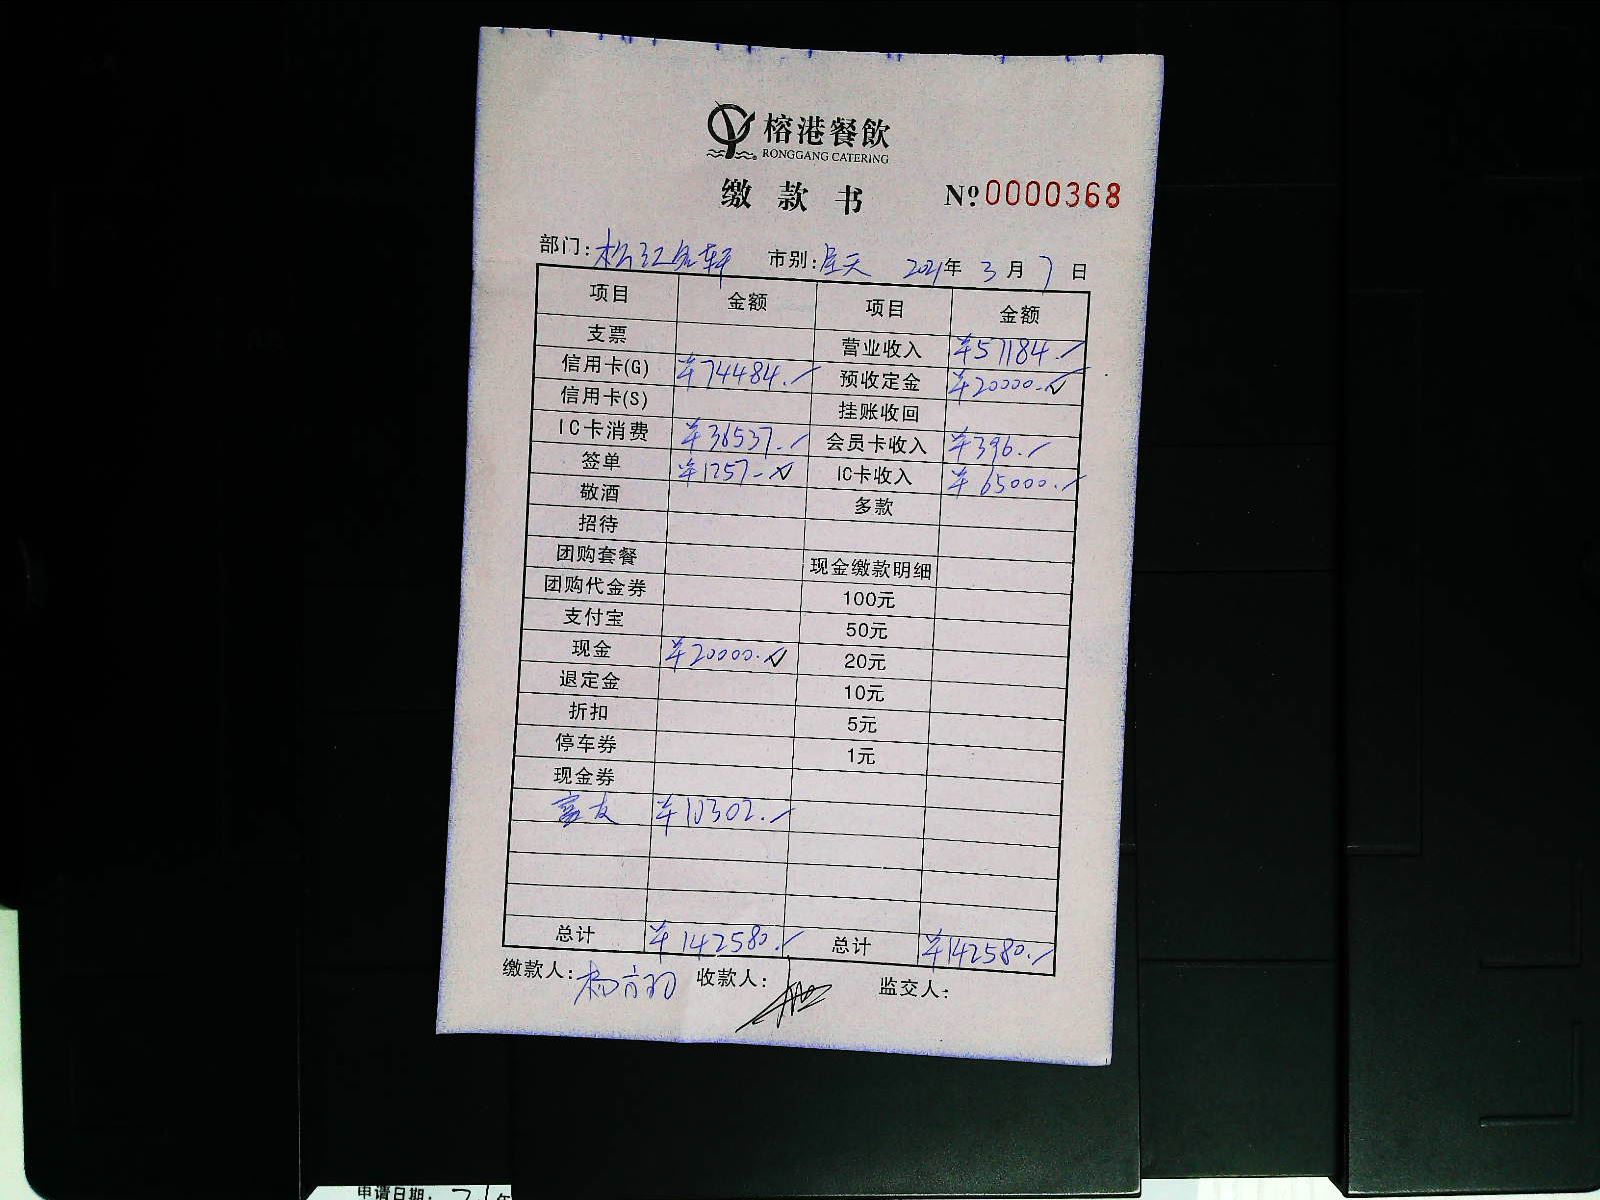 榕港餐飲
RONGGANG CATERING
缴款书 №0000368
部门:松江名轩 市别:全天 2021年3月7日
项目 金额 项目 金额
支票 营业收入 ¥57184.
信用卡(G) ¥74484. 预收定金 ¥20000.
信用卡(S) 挂账收回
IC卡消费 ¥36537. 会员卡收入 ¥396.
签单 ¥1257- IC卡收入 ¥65000.
敬酒 多款
招待
团购套餐 现金缴款明细
团购代金券 100元
支付宝 50元
现金 ¥20000. 20元
退定金 10元
折扣 5元
停车券 1元
现金券
富友 ¥10302.
总计 ¥142580. 总计 ¥142580.
缴款人: 收款人: 监交人:
申请日期: